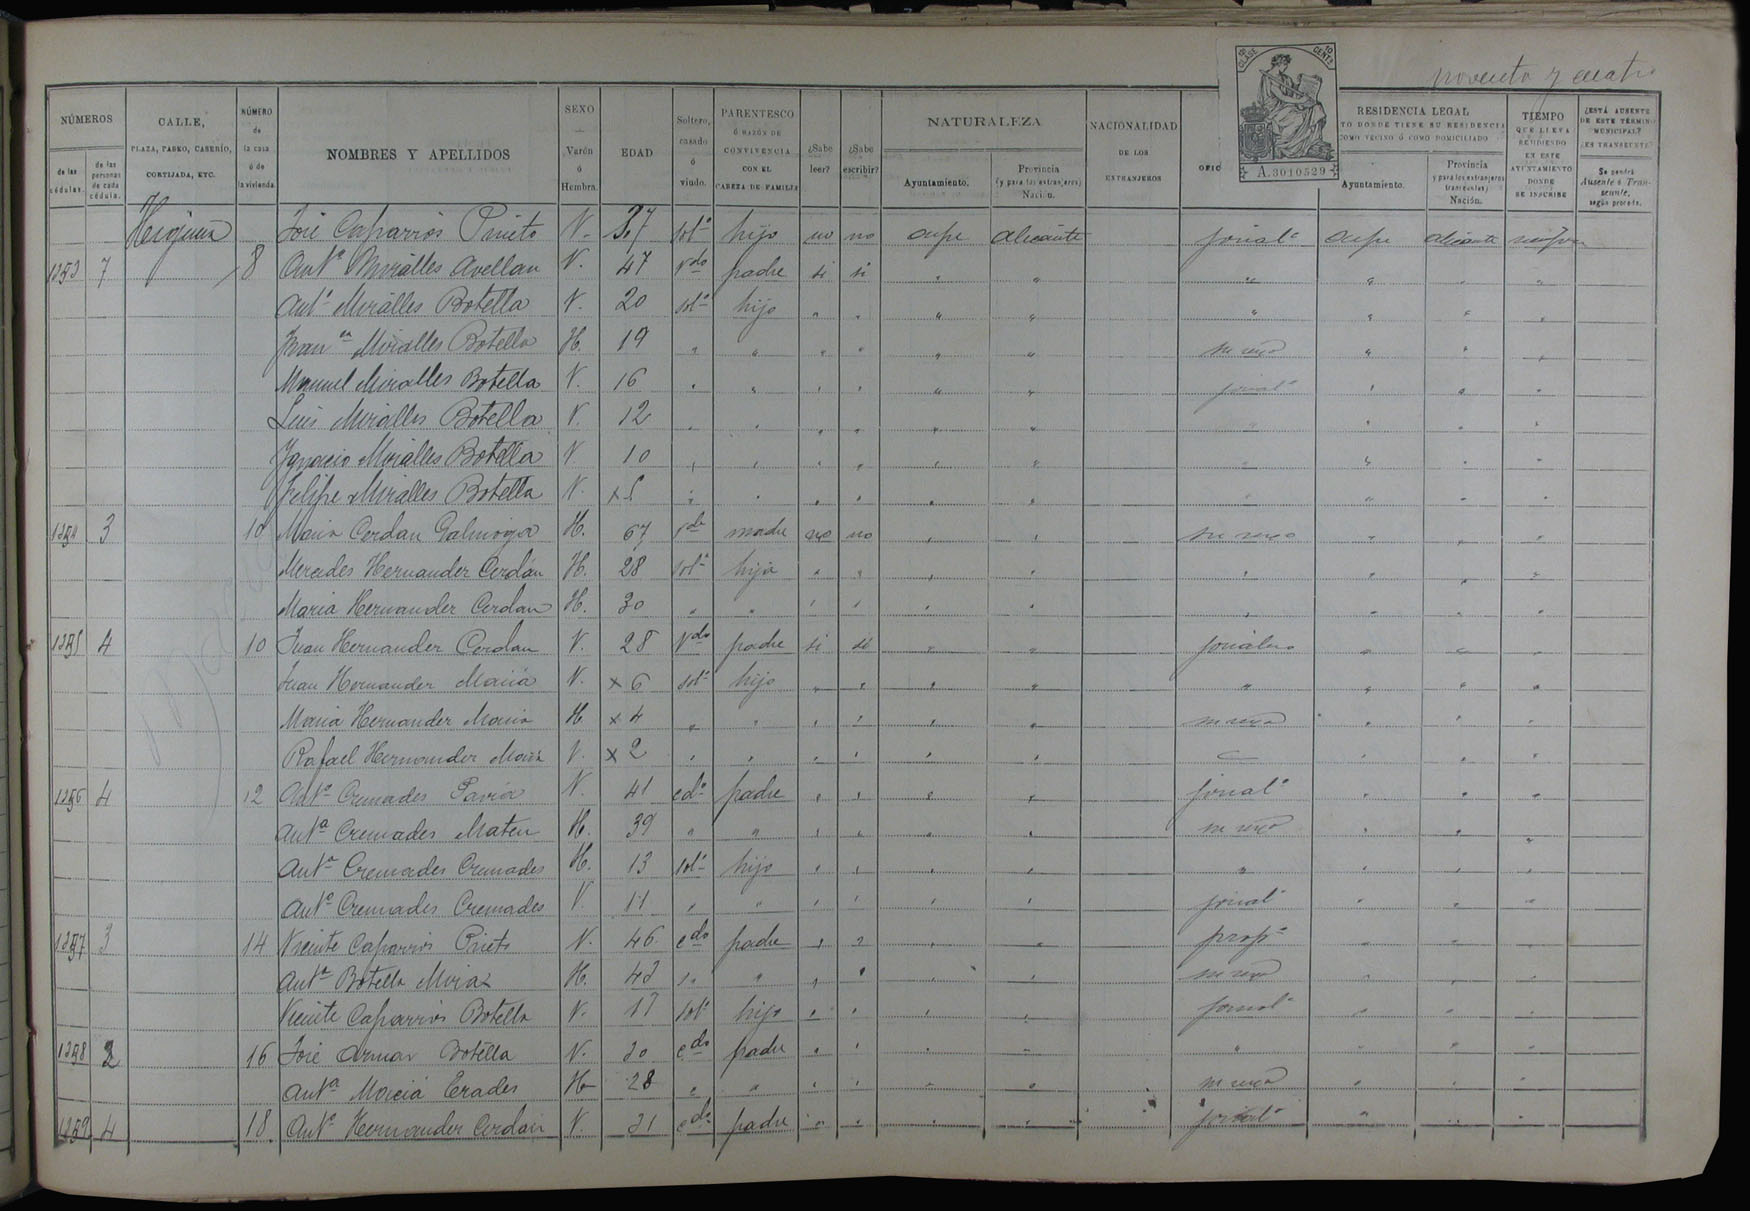 noventa y cuatro
18 CLASE 10 CENTS
A.3010529
NÚMEROS
de las cédulas.
de las personas de cada cédula.
CALLE, PLAZA, PASEO, CASERÍO, CORTIJADA, ETC.
NÚMERO de la casa ó de la vivienda.
NOMBRES Y APELLIDOS
SEXO Varón ó Hembra.
EDAD
Soltero, casado ó viudo.
PARENTESCO Ó RAZÓN DE CONVIVENCIA CON EL CABEZA DE FAMILIA
¿Sabe leer?
¿Sabe escribir?
NATURALEZA
Ayuntamiento.
Provincia (y para los extranjeros) Nación.
NACIONALIDAD DE LOS EXTRANJEROS
OFIC
RESIDENCIA LEGAL
TO DONDE TIENE SU RESIDENCIA
COMO VECINO Ó COMO DOMICILIADO
Ayuntamiento.
Provincia y para los extranjeros transeuntes) Nación.
TIEMPO QUE LLEVA RESIDIENDO EN ESTE AYUNTAMIENTO DONDE SE INSCRIBE
¿ESTÁ AUSENTE DE ESTE TÉRMINO MUNICIPAL? ¿ES TRANSEUNTE?
Se pondrá Ausente ó Transeunte, según proceda.
José Caparrós Prieto V. 37 solº hijo no no aspe alicante jornalº aspe alicante
1253 7 8 Antº Miralles Avellan V. 47 Vdo padre si si " " " " " "
Antº Miralles Botella V. 20 solº hijo " " " " " " " "
Miralles Botella H. 19 " " " " " " " " "
Manuel Miralles Botella V. 16 " " " " " " jornalº " " "
Luis Miralles Botella V. 12 " " " " " " " " " "
Ignacio Miralles Botella V 10 " " " " " " " " " "
Felipe Miralles Botella V. x 5 " " " " " " " " " "
1254 3 10 Maria Cerdan H. 67 Vda madre no no " " " " "
Mercedes Hernandez Cerdán H. 28 solª hija " " " " " " " "
Maria Hernandez Cerdan H. 30 " " " " " " " " " "
1255 4 10 Juan Hernandez Cerdan V. 28 Vdo padre si si " " jornalero " " "
Juan Hernandez Maciá V. x 6 solº hijo " " " " " " " "
Maria Hernandez Maciá H x 4 " " " " " " " " "
Rafael Hernandez Maciá V. x 2 " " " " " " " " "
1256 4 12 Antº Cremades Pavia V. 41 cdo padre " " " " jornalº " " "
Antª Cremades Mateu H. 39 " " " " " " " " "
Antª Cremades Cremades H. 13 solª hijo " " " " " " " "
Antº Cremades Cremades V. 11 " " " " " " jornal " " "
1257 3 14 Vicente Caparrós Prieto V. 46 cdo padre " " " " propº " " "
Antª Botella H. 43 " " " " " " " " "
Vicente Caparrós Botella V. 17 solº hijo " " " " jornalº " " "
1258 2 16 José Botella V. 30 cdo padre " " " " " " " "
Antª Maciá Erades H 28 " " " " " " " " "
1259 4 18 Antº Hernandez Cerdán V. 31 cdo padre " " " " jornalº " "